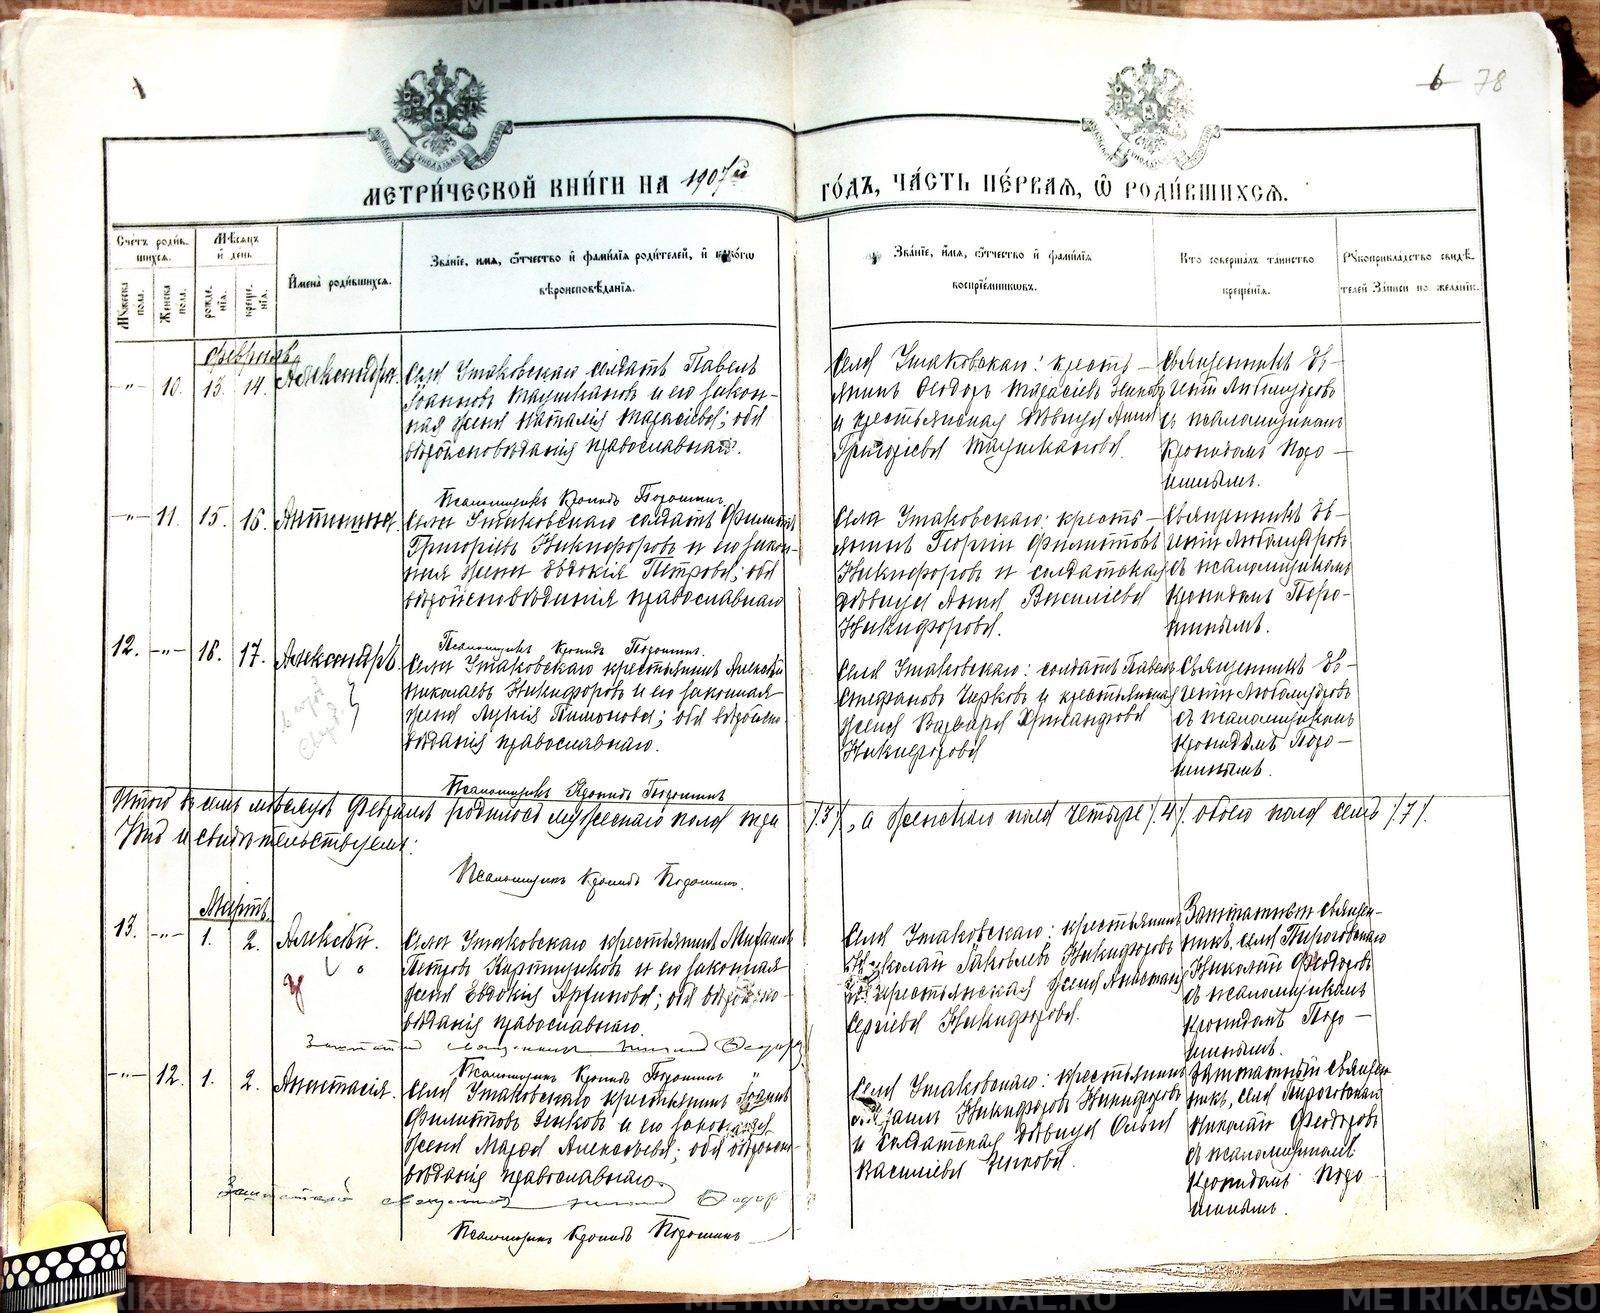 78
МЕТРИ́ЧЕСКОЙ КНИ́ГИ НА 1907й ГО́ДЪ, ЧА́СТЬ ПЕ́РВАЯ, Ѡ РОДИ́ВШИХСЯ.
Сче́тъ роди́вшихся.
Му́жеска пола.
Же́нска пола.
Мѣ́сяцъ и́ день
рожде́нїя.
креще́нїя.
И́мена̀ роди́вшихся.
Зва́нїе, имя, ѻ́тчество и́ фами́лїя роди́телей, и́ како́гѡ вѣроисповѣ́данїя.
Зва́нїе, и́мя, ѻ́тчество и́ фами́лїя воспрїе́мниковъ.
Кто соверша́лъ та́инство креще́нїя.
Рꙋкоприкла́дство свидѣ́телей за́писи по жела́нїю.
Февраль
-"- 10. 13. 14. Александра.
Села Утаковскаго солдатъ Павелъ
Іоанновъ Таушкановъ и его закон-
ная жена Наталія Тарасіева; оба
вѣроисповѣданія православнаго.
Села Утаковскаго: кресть-
янинъ Ѳеодоръ Тарасіевъ Зыковъ
и крестьянская дѣвица Анна
Григоріева Таушканова.
Священникъ Ев-
геній Любомудровъ
съ псаломщикомъ
Кронидомъ Поро-
шинымъ.
Псаломщикъ Кронидъ Порошинъ.
-"- 11. 15. 16. Антонина.
Села Утаковскаго солдатъ Филиппъ
Григоріевъ Никифоровъ и его закон-
ная жена Евдокія Петрова; оба
вѣроисповѣданія православнаго
Села Утаковскаго: кресть-
янинъ Георгій Филипповъ
Никифоровъ и солдатская
дѣвица Анна Василіева
Никифорова.
Священникъ Ев-
геній Любомудровъ
съ псаломщикомъ
Кронидомъ Поро-
шинымъ.
Псаломщикъ Кронидъ Порошинъ.
12. -"- 16. 17. Александръ.
Села Утаковскаго крестьянинъ Алексѣй
Николаевъ Никифоровъ и его законная
жена Лукія Пимонова; оба вѣроиспо-
вѣданія православнаго.
Села Утаковскаго: солдатъ Павелъ
Стефановъ Чирковъ и крестьянская
жена Варвара
Никифорова
Священникъ Ев-
геній Любомудровъ
съ псаломщикомъ
Кронидомъ Поро-
шинымъ.
Псаломщикъ Кронидъ Порошинъ
Итого въ семъ мѣсяцѣ Февралѣ родилось мужескаго пола три /3/, а женскаго пола четыре /4/. обоего пола семь /7/.
Что и свидѣтельствуемъ:
Псаломщикъ Кронидъ Порошинъ.
Мартъ
13. -"- 1. 2. Алексѣй.
Села Утаковскаго крестьянинъ Михаилъ
Петровъ Картшиковъ и его законная
жена Евдокія Архипова; оба вѣроиспо-
вѣданія православнаго.
Села Утаковскаго: крестьянинъ
Николай Іаковлевъ Никифоровъ
и крестьянская жена Анастасія
Сергіева Никифорова.
Заштатный священ-
никъ, села Пироговскаго
Николай Ѳеодоровъ
съ псаломщикомъ
Кронидомъ Поро-
шинымъ.
Заштатный священникъ Николай Ѳедоровъ
Псаломщикъ Кронидъ Порошинъ
-"- 12. 1. 2. Анастасія.
Села Утаковскаго крестьянинъ Іоаннъ
Филипповъ Зыковъ и его законная
жена Марѳа Алексѣева; оба вѣроиспо-
вѣданія православнаго.
Села Утаковскаго: крестьянинъ
Никифоровъ Никифоровъ
и солдатская дѣвица Ольга
Василіева Зыкова.
Заштатный священ-
никъ, села Пироговскаго
Николай Ѳеодоровъ
съ псаломщикомъ
Кронидомъ Поро-
шинымъ.
Заштатный священникъ Николай Ѳедоровъ
Псаломщикъ Кронидъ Порошинъ
METRIKI.GASO-URAL.RU